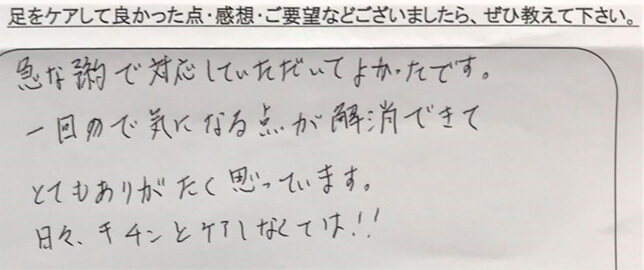 足をケアして良かった点・感想・ご要望などございましたら、ぜひ教えて下さい。
急な予約で対応していただいてよかったです。
一回ので気になる点が解消できて
とてもありがたく思っています。
日々、キチンとケアしなくては!!